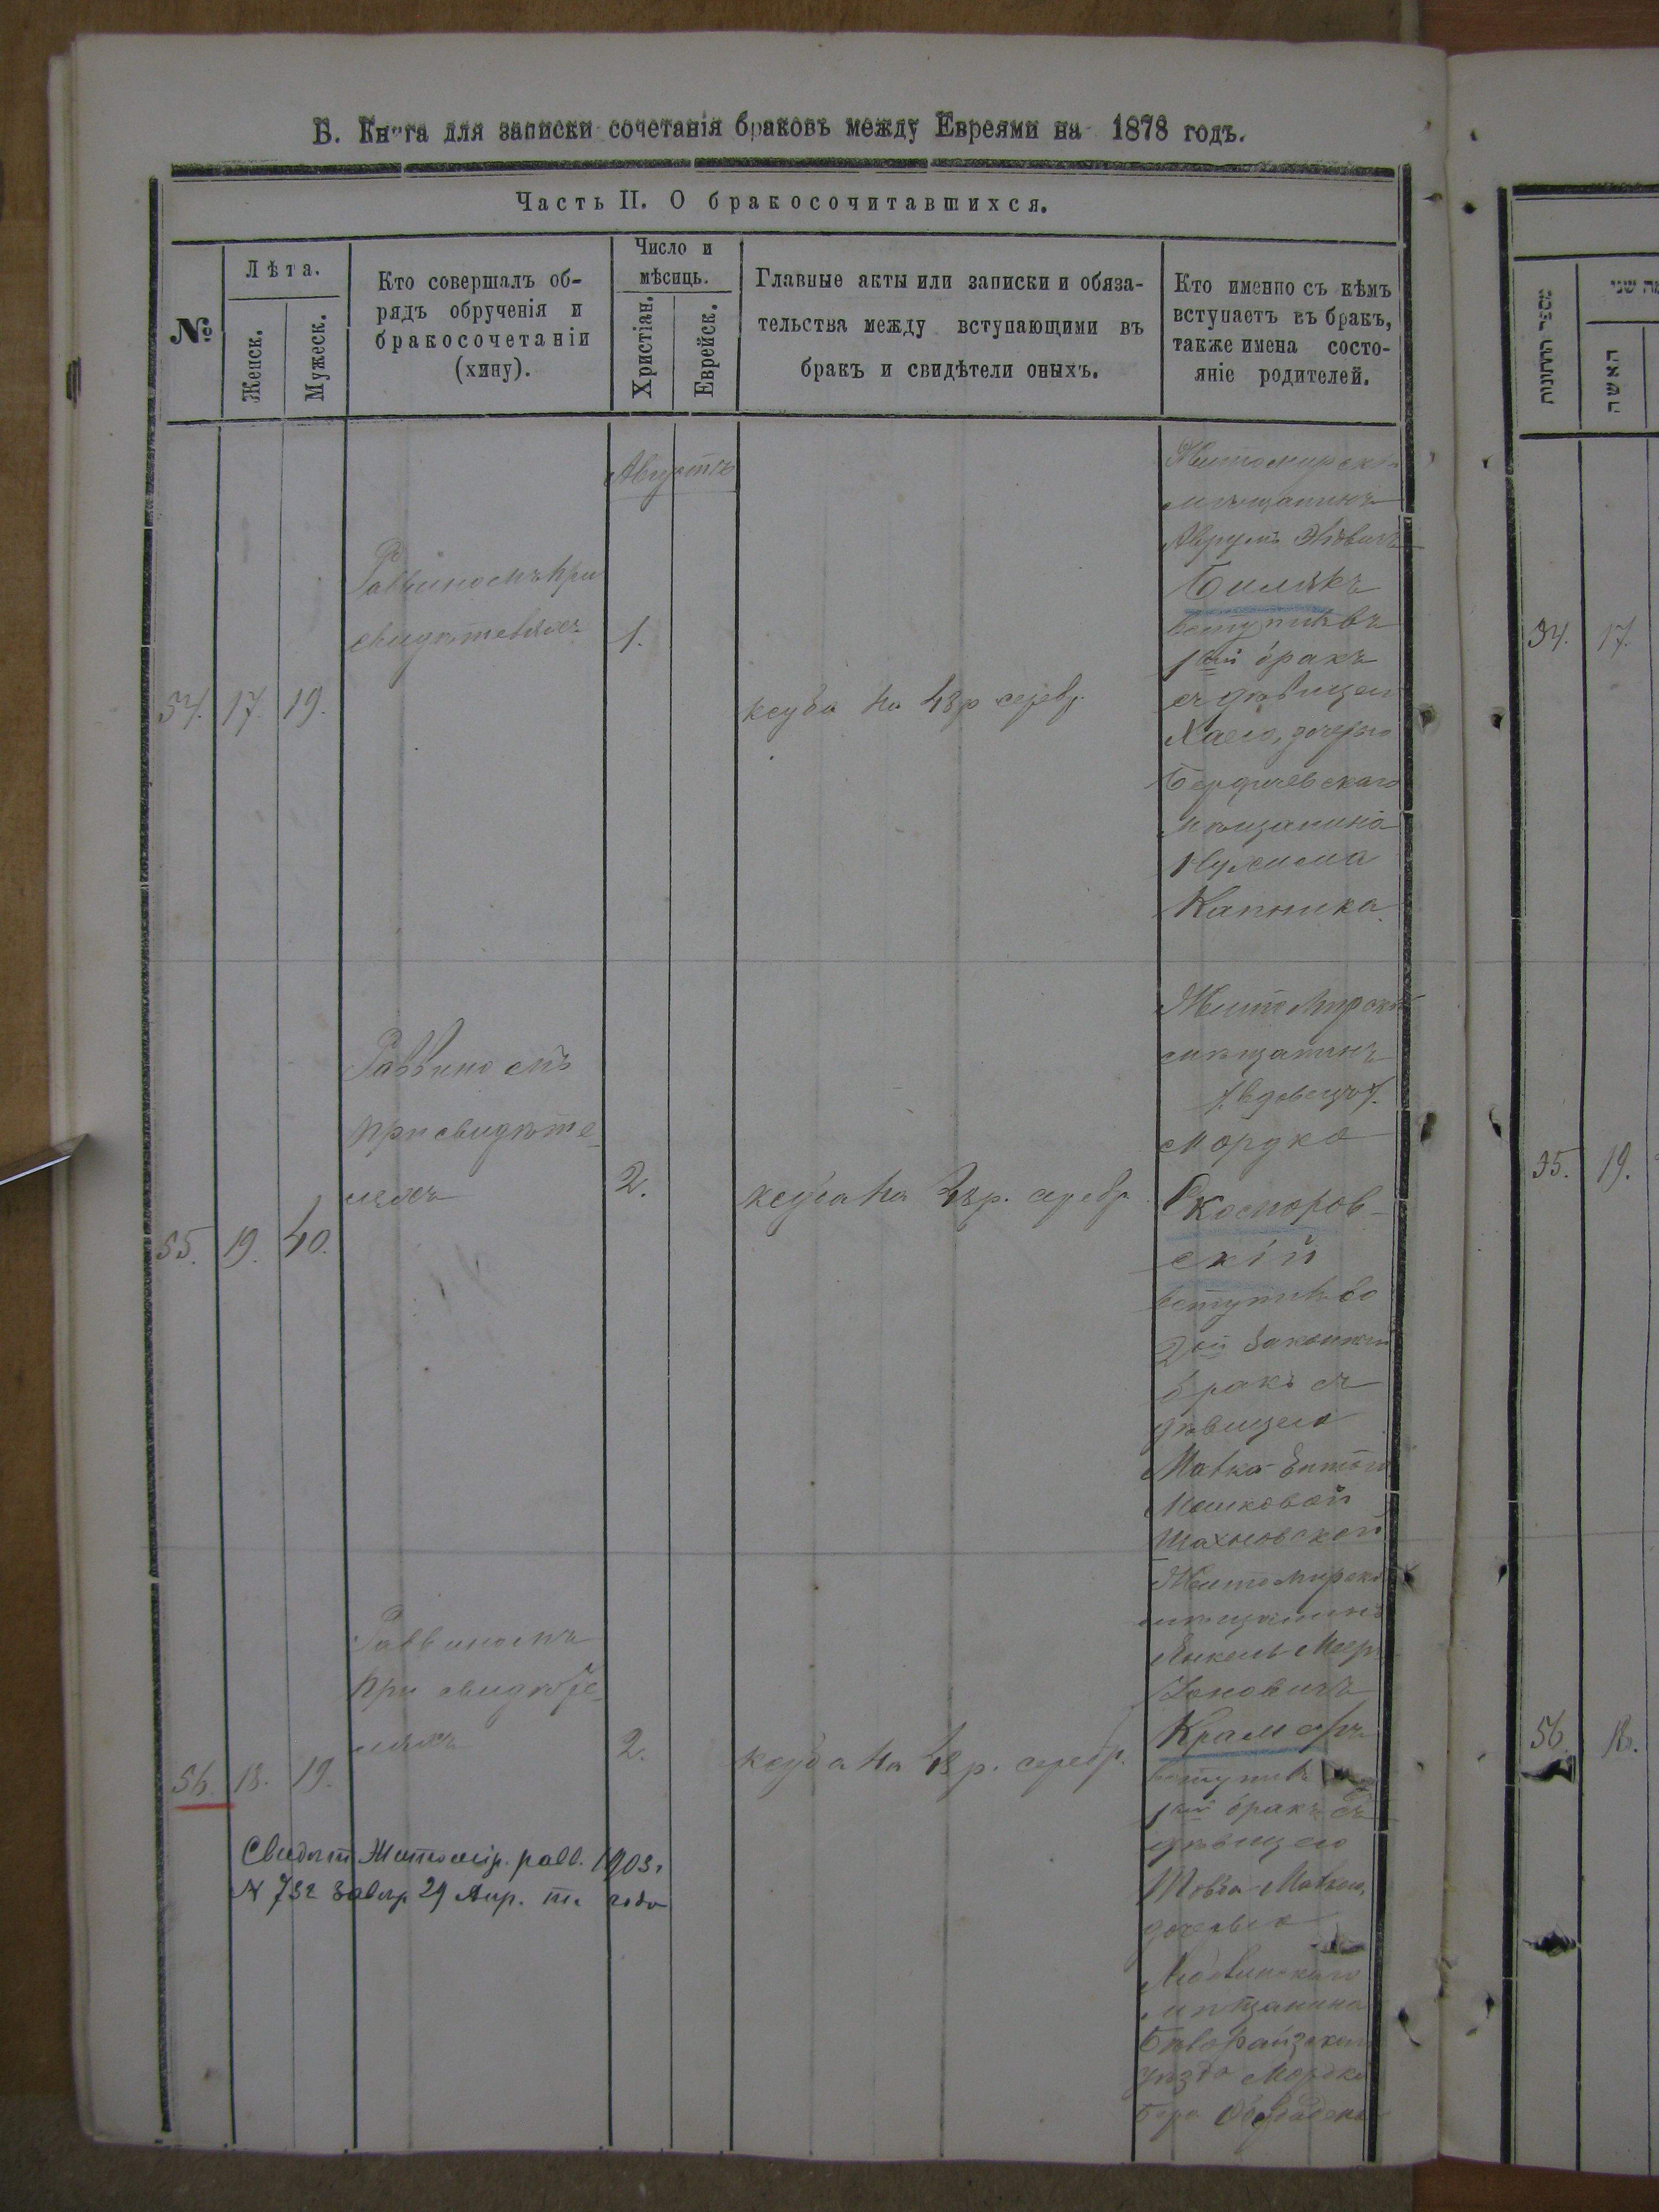 Б. Книга для записки сочетанія браковъ между Евреями на 1878 годъ.
Часть II. О бракосочитавшихся.
№
Лѣта.
Женск.
Мужеск.
Кто совершалъ об-
рядъ обрученія и
бракосочетаніи
(хину).
Число и
мѣсяць.
Христіан.
Еврейск.
Главные акты или записки и обяза-
тельства между вступающими въ
бракъ и свидѣтели оныхъ.
Кто именно съ кѣмъ
вступаетъ въ бракъ,
также имена состо-
яніе родителей.
מספר החתונות
האשה
Августъ
54. 17. 19.
Раввиномъ при
свидѣтеляхъ
1.
ксуба на 48 р серебр.
Житомирскій
мѣщанинъ
Аврумъ
Билякъ
вступилъ въ
1ый бракъ
съ дѣвицею
Хаею, дочерью
Бердичевскаго
мѣщанина
Нухима
Капника
55. 19. 40.
Раввиномъ
при свидѣте-
ляхъ
2.
ксуба на р. серебр
Житомирскій
мѣщанинъ
/вдовецъ/
Мордко
Скоморов-
скій
вступилъ во
2ой законный
бракъ съ
дѣвицею
Малка
Мошковой
Шахновской
56. 18. 19.
Раввиномъ
при свидѣте-
ляхъ
2.
ксуба на 48 р. серебр.
Житомирскій
мѣщанинъ
Янкель Меер
Крамаръ
вступилъ въ
1ый бракъ съ
дѣвицею
дочерью
мѣщанина
уѣзда Мордко
Бера
Свидѣт. Житомір. равв. 1903 г
N 732 завѣр 29 Апр. т. года
34. 17.
35. 19.
56. 18.